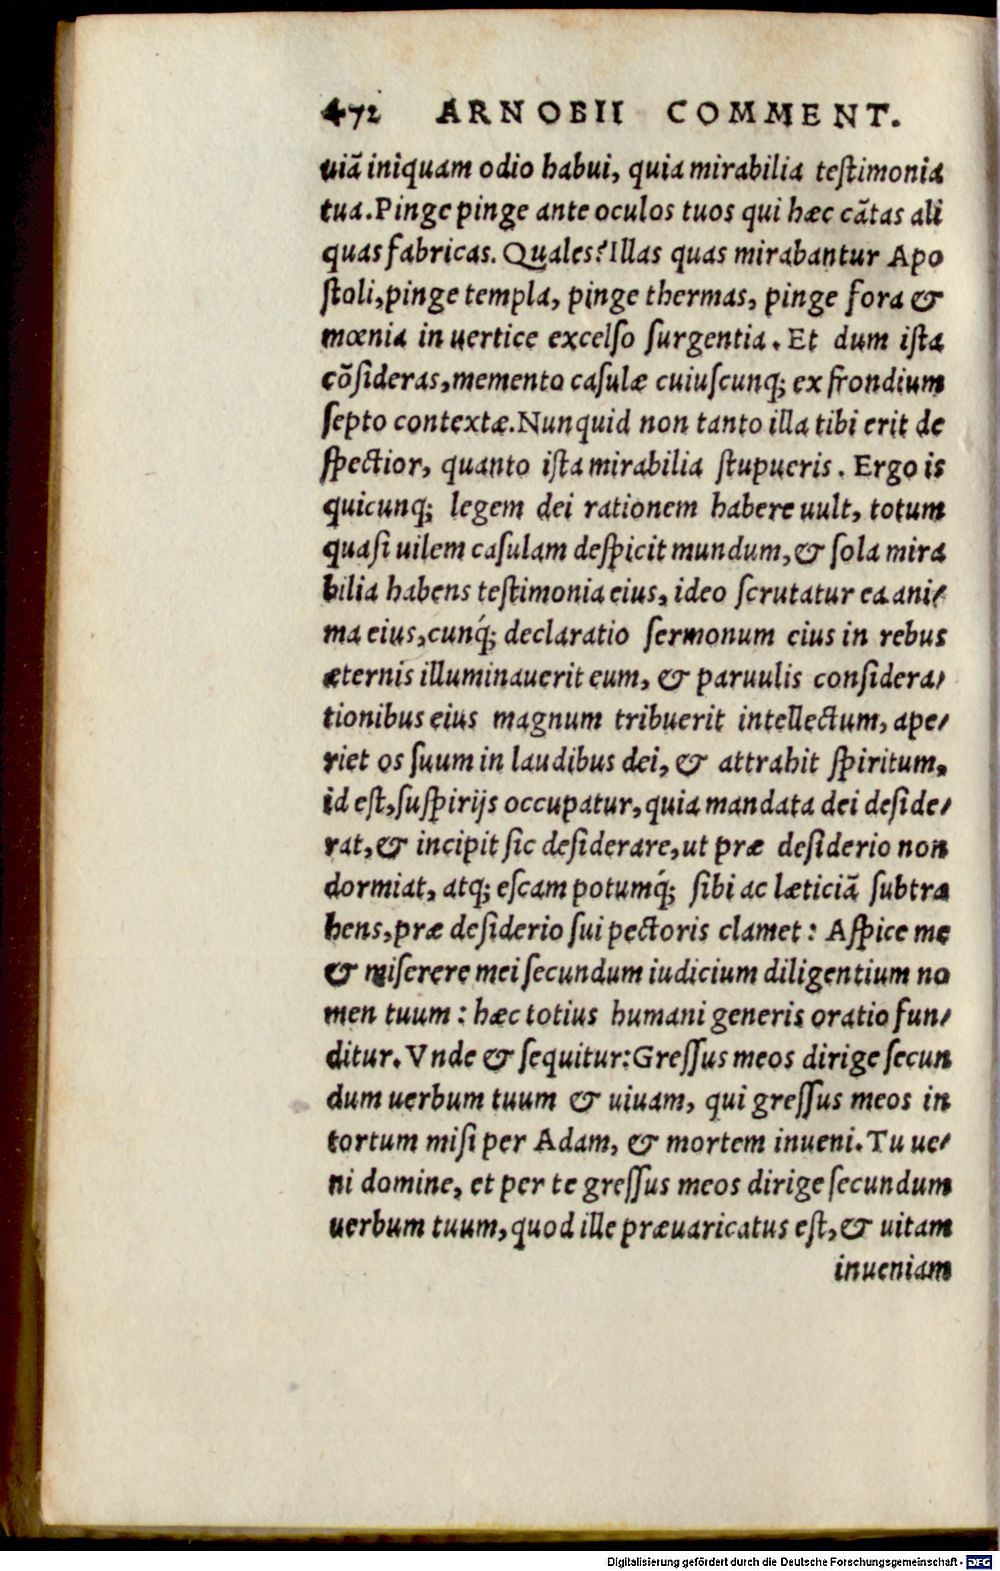 472 ARNOBII COMMENT.
uiã iniquam odio habui, quia mirabilia testimonia
tua. Pinge pinge ante oculos tuos qui hæc cãtas ali
quas fabricas. Quales? Illas quas mirabantur Apo
stoli, pinge templa, pinge thermas, pinge fora &
mœnia in uertice excelso surgentia. Et dum ista
cõsideras, memento casulæ cuiuscunq; ex frondium
septo contextæ. Nunquid non tanto illa tibi erit de
spectior, quanto ista mirabilia stupueris. Ergo is
quicunq; legem dei rationem habere uult, totum
quasi uilem casulam despicit mundum, & sola mira
bilia habens testimonia eius, ideo scrutatur ea ani-
ma eius, cunq́; declaratio sermonum eius in rebus
æternis illuminauerit eum, & paruulis considera-
tionibus eius magnum tribuerit intellectum, ape-
riet os suum in laudibus dei, & attrahit spiritum,
id est, suspirijs occupatur, quia mandata dei deside-
rat, & incipit sic desiderare, ut præ desiderio non
dormiat, atq; escam potumq́; sibi ac læticiã subtra
hens, præ desiderio sui pectoris clamet: Aspice me
& miserere mei secundum iudicium diligentium no
men tuum: hæc totius humani generis oratio fun-
ditur. Vnde & sequitur: Gressus meos dirige secun
dum uerbum tuum & uiuam, qui gressus meos in
tortum misi per Adam, & mortem inueni. Tu ue-
ni domine, et per te gressus meos dirige secundum
uerbum tuum, quod ille præuaricatus est, & uitam
inueniam
Digitalisierung gefördert durch die Deutsche Forschungsgemeinschaft - DFG